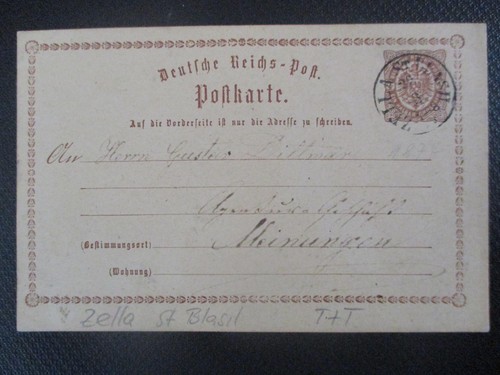 Deutsche Reichs-Post.
Postkarte.
Auf die Vorderseite ist nur die Adresse zu schreiben.
An Herrn Gustav Dittmar
Meiningen
(Bestimmungsort)
(Wohnung)
Zella St Blasil T+T
ZELLA ST. BLASII